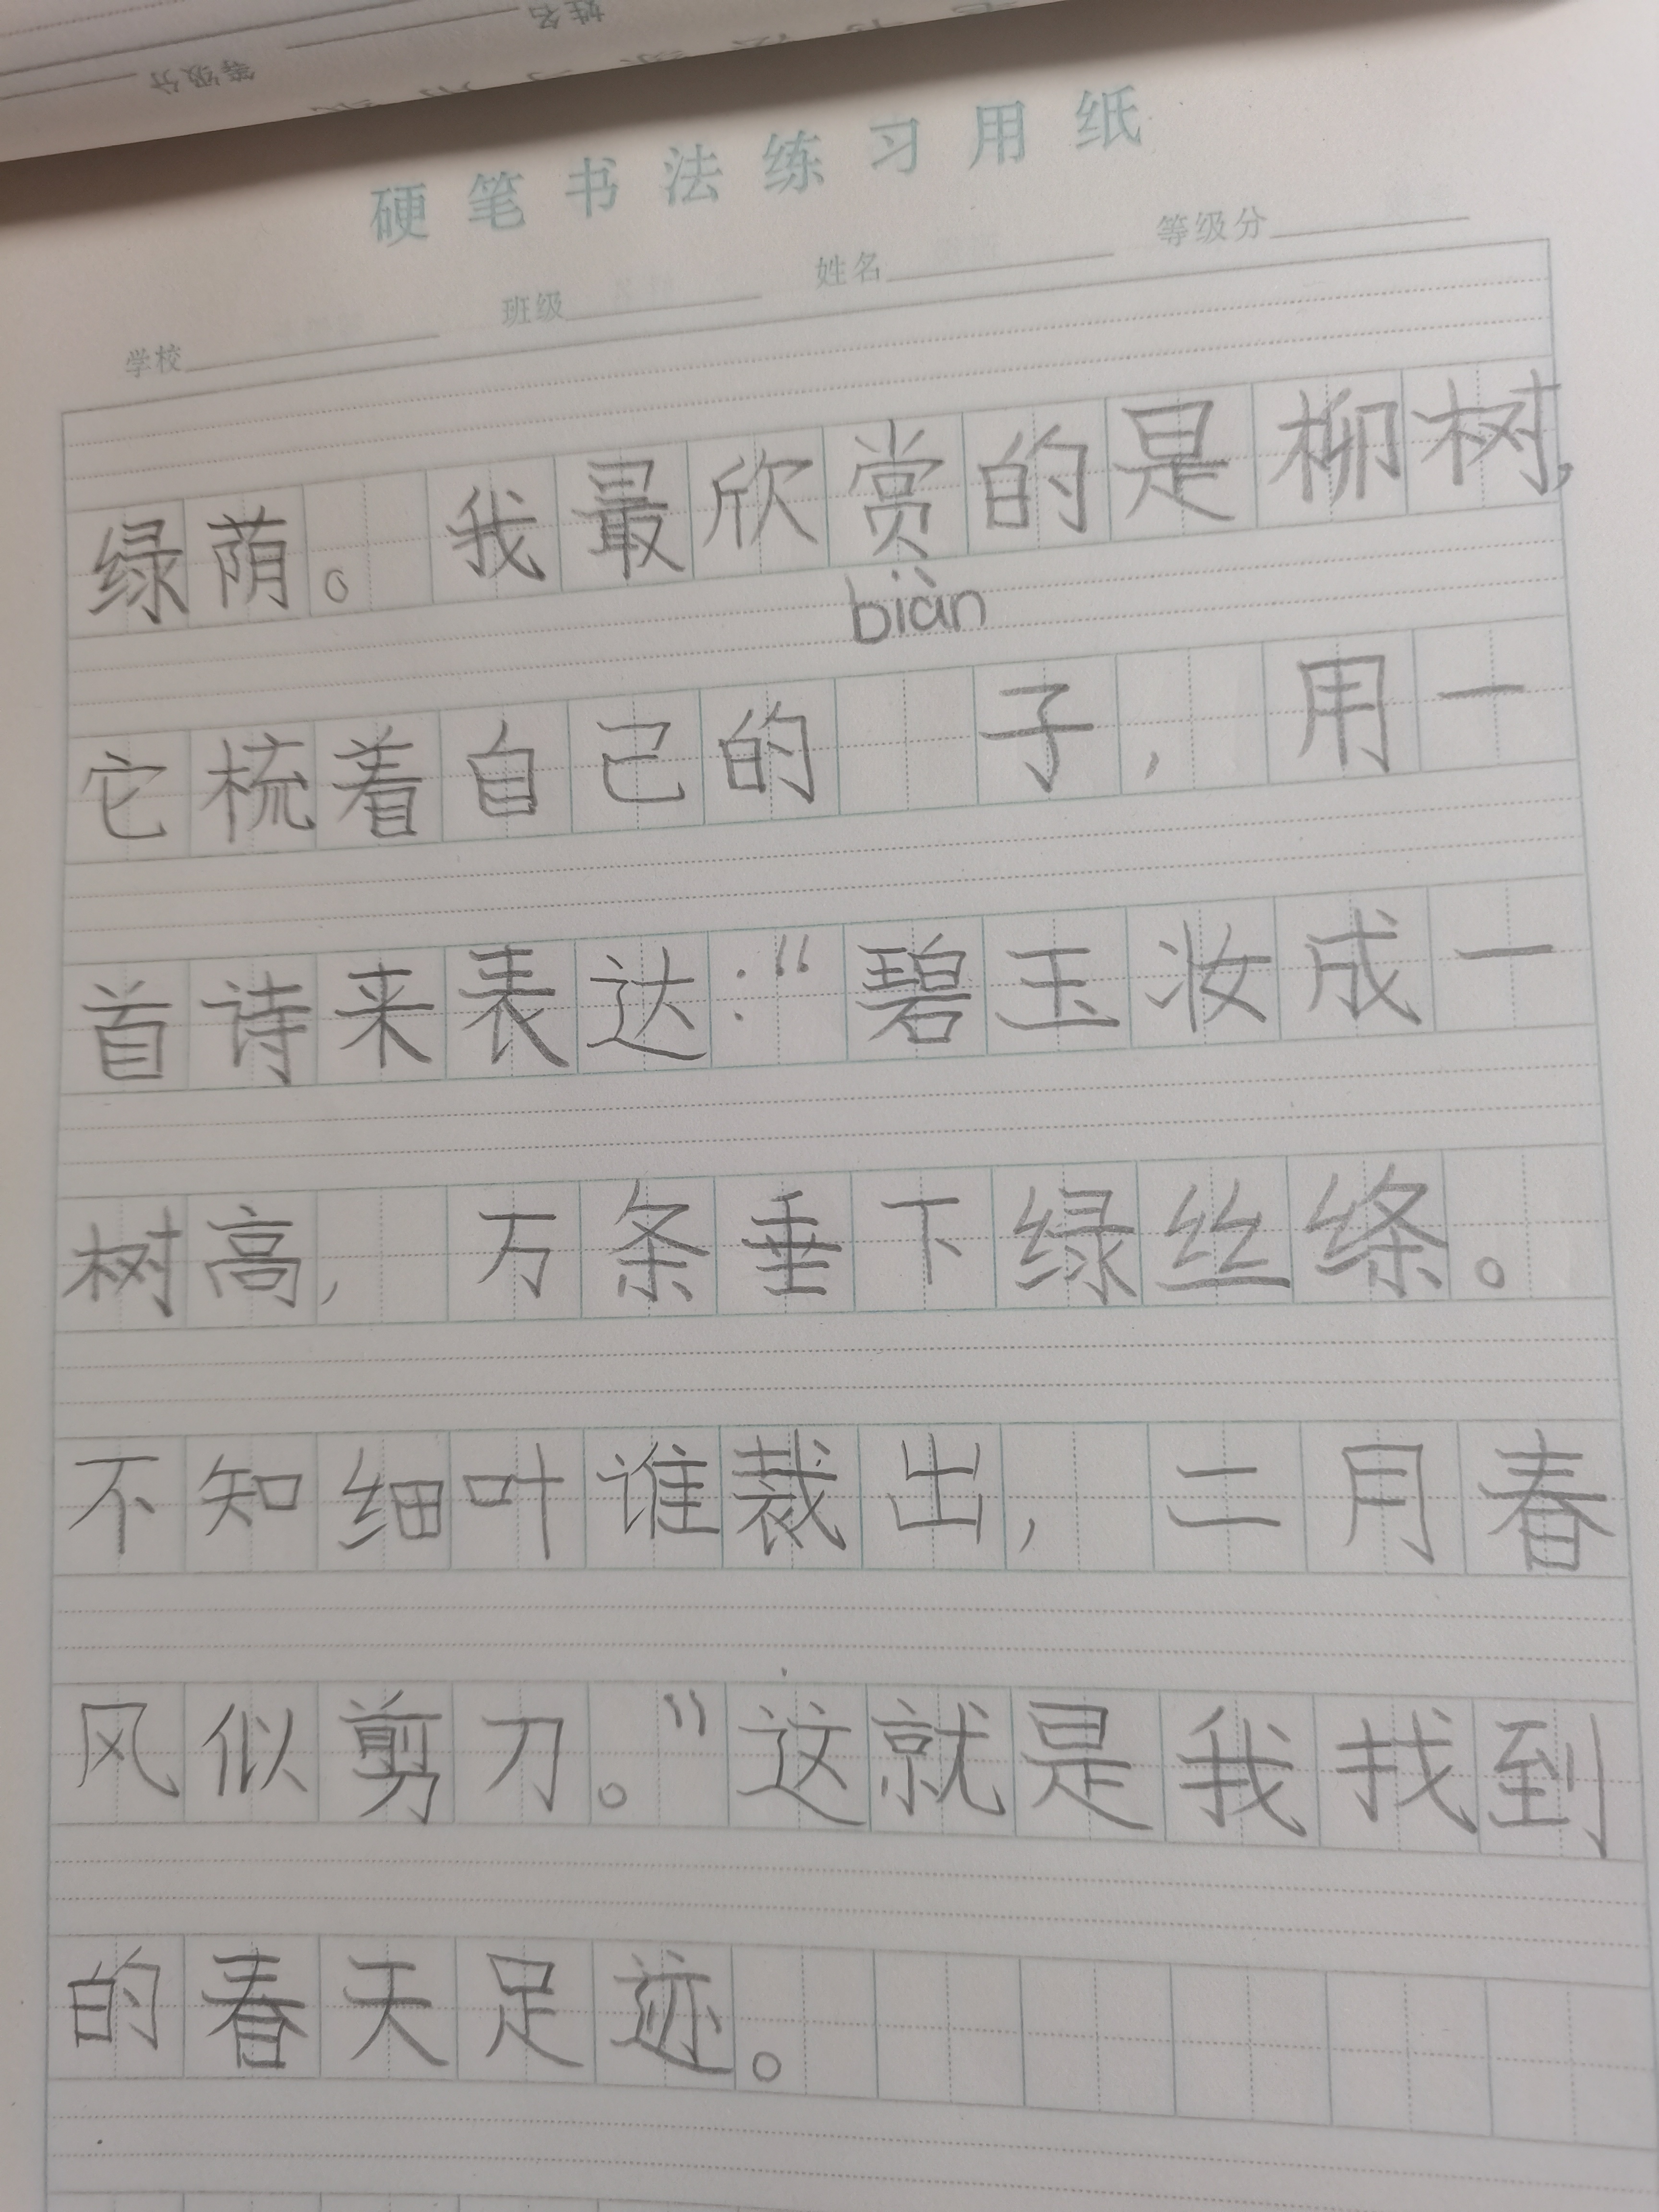 姓名
等级分
硬笔书法练习用纸
学校 班级 姓名 等级分
绿荫。我最欣赏的是柳树，
biàn
它梳着自己的 子，用一
首诗来表达：“碧玉妆成一
树高，万条垂下绿丝绦。
不知细叶谁裁出，二月春
风似剪刀。”这就是我找到
的春天足迹。